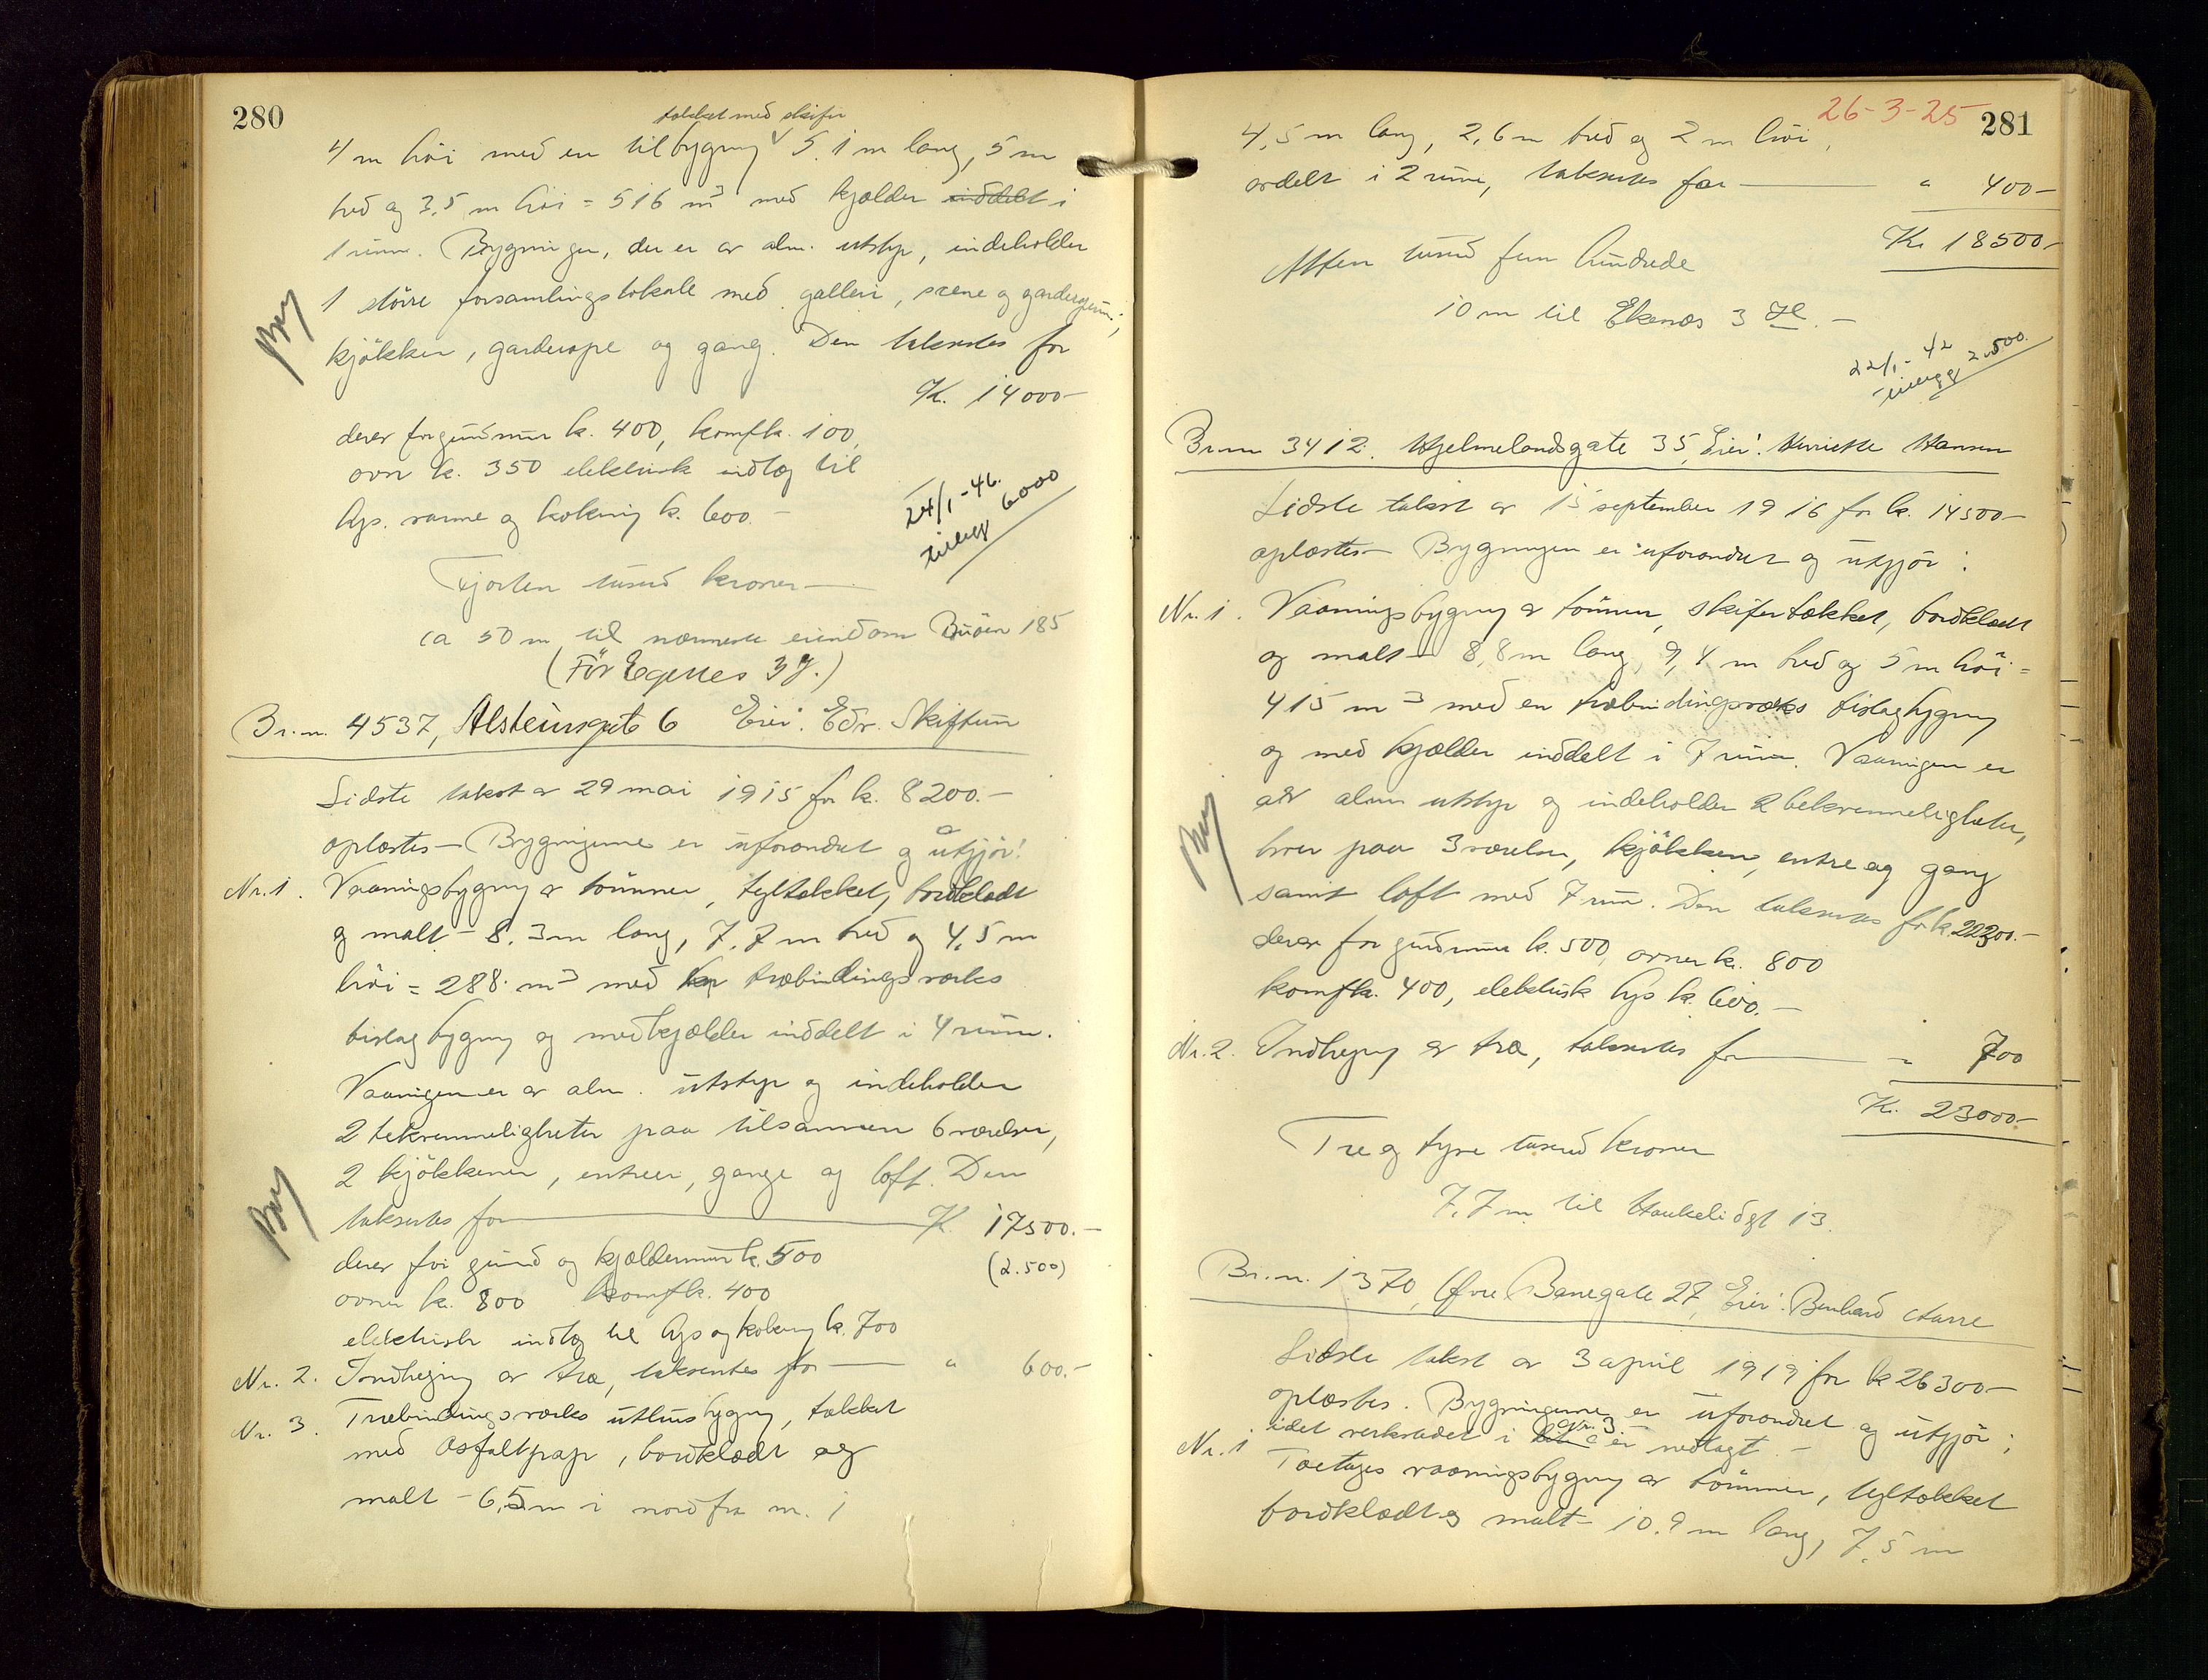 280
takket med skifer
4 m höi med en tilbygning 5.1 m lang, 5 m
bred og 3,5 m höi = 516 m³ med kjælder inddelt i
1 rum. Bygningen, der er av alm. utstyr, indeholder
1 större forsamlingslokale med galleri, scene og
kjökken, garderope og gang. Den takseres for
K. 14000-
derav for grundmur k. 400, komf k. 100,
ovn k. 350 elektrisk indlæg til
lys. varme og kokning k. 600.-
24/1-46.
tillegg 6000
Fjorten tusind kroner-
ca 50 m til nærmeste eiendom Buöen 185
(För Egenes 3 J.)
Br.n. 4537, Alsteinsgate 6 Eier: Edv. Skiftun
Sidste takst av 29 mai 1915 for k. 8200.-
oplæstes- Bygningerne er uforandret og utgjör:
Nr. 1. Vaaningsbygning av tömmer, tegltakket, bordklædt
og malt - 8.3 m lang, 7.7 m bred og 4,5 m
höi = 288 m³ med træbindingsverks
bislagbygning og med kjælder inddelt i 4 rum.
Vaaningen er av alm. utstyr og indeholder
2 bekvemmeligheter paa tilsammen 6 værelser,
2 kjökkener, entreer, gange og loft. Den
takseres for K. 17500.-
derav for grund og kjældermur k. 500
(2.500)
ovner k. 800 komf k. 400
elektrisk indlæg til lys og kokning k. 700
Nr. 2. Indhegning av træ, takseres for " 600.-
Nr. 3. Træbindingsverks uthusbygning, takket
med asfaltpap, bordklædt og
malt - 6,5 m i nord fra nr. 1
26-3-25
281
4,5 m lang, 2,6 m bred og 2 m höi,
ordelt i 2 rum, takseres for " 400-
Kr 18500-
Atten tusind fem hundrede
10 m til Ekenes 3
22/1-42
tillegg 2.500.
Br.nr 3412. Hjelmelandsgate 35, Eier: Henriette Hansen
Sidste takst av 15 september 1916 for k. 14500-
oplæstes- Bygningen er uforandret og utgjör:
Nr. 1. Vaaningsbygning av tömmer, skifertækket, bordklædt
og malt - 8,8 m lang, 9,4 m bred og 5 m höi =
415 m³ med en træbindingsverks bislagbygning
og med kjælder inddelt i 7 rum. Vaaningen er
av alm utstyr og indeholder 2 bekvemmeligheter,
hver paa 3 værelser, kjökken, entre og gang
samt loft med 7 rum. Den takseres for k. 22300.-
derav for grundmur k. 500, ovner k. 800
komf k. 400, elektrisk lys k. 600.-
Nr. 2. Indhegning av træ, takseres for " 700
K. 23000-
Tre og tyve tusind kroner
7.7 m til Haukeligt 13.
Br.n. 1370, Övre Banegate 27, Eier: Bernhard
Sidste takst av 3 april 1919 for k 26300-
oplæstes. Bygningerne er uforandret og utgjör;
idet verkstedet i nr. 3 er nedlagt.-
Nr. 1 Toetages vaaningsbygning av tömmer, tegltækket
bordklædt og malt - 10.9 m lang, 7,5 m